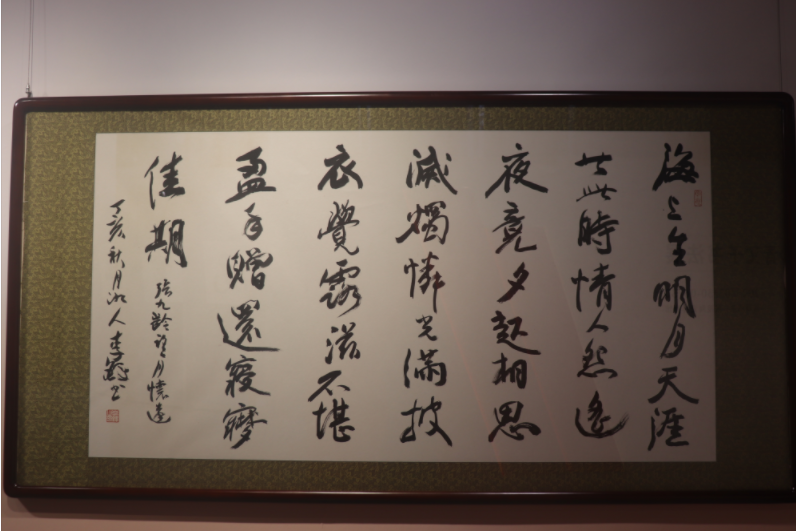 海上生明月天涯
共此時情人怨遙
夜竟夕起相思
滅燭憐光滿披
衣覺露滋不堪
盈手贈還寢夢
佳期
張九齡望月懷遠
丁亥秋月湘人李書